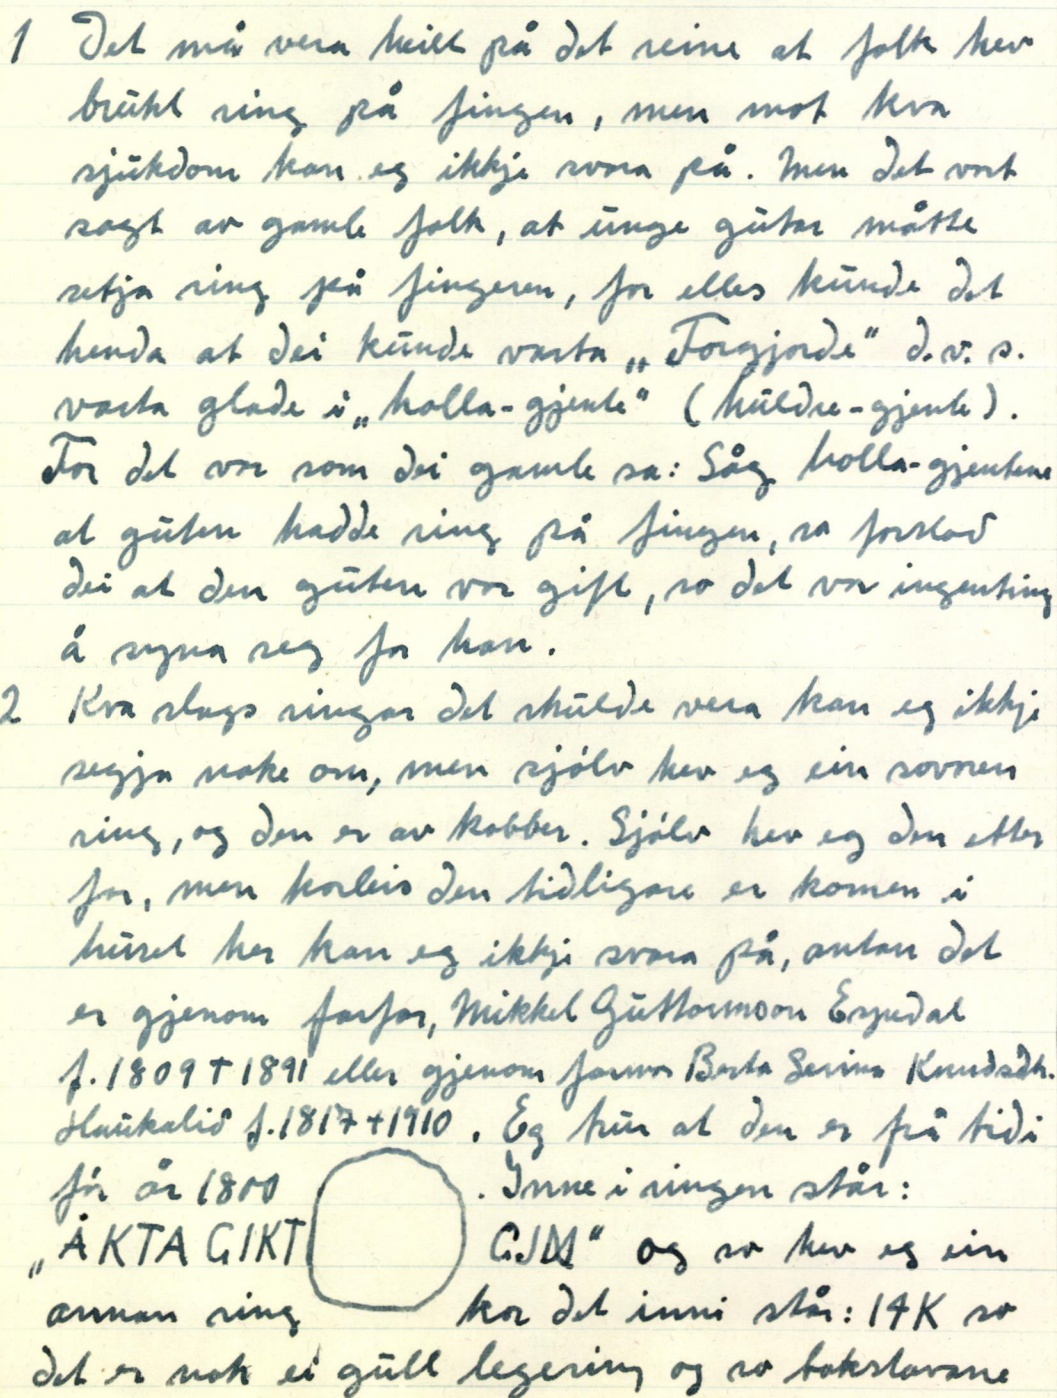 1 Det må vera heilt på det reine at folk hev
brukt ring på fingen, men mot kva
sjukdom kan eg ikkje svara på. Men det vart
sagt av gamle folk, at unge gutar måtte
setja ring på fingeren, for elles kunde det
henda at dei kunde varta „Forgjorde" d.v.s.
varta glade i „holla-gjente" (huldre-gjente).
For det var som dei gamle sa: Såg holla-gjentene
at guten hadde ring på fingen, so forstod
dei at den guten var gift, so det var ingenting
å syna seg for han.
2 Kva slags ringar det skulde vera kan eg ikkje
segja noke om, men sjølv hev eg ein sovoren
ring, og den er av kobber. Sjølv hev eg den etter
far, men korleis den tidligare er komen i
huset her kan eg ikkje svara på, antan det
er gjenom farfar, Mikkel Guttormson Espedal
f. 1809 † 1891 eller gjenom farmor Berta Serina Knudsdtr.
Haukalid f. 1817 + 1910. Eg trur at den er frå tidi
før år 1800 . Inne i ringen står:
„ÄKTA GIKT GJM" og so hev eg ein
annan ring kor det inni står: 14K so
det er nok ei gull legering og so bokstavane